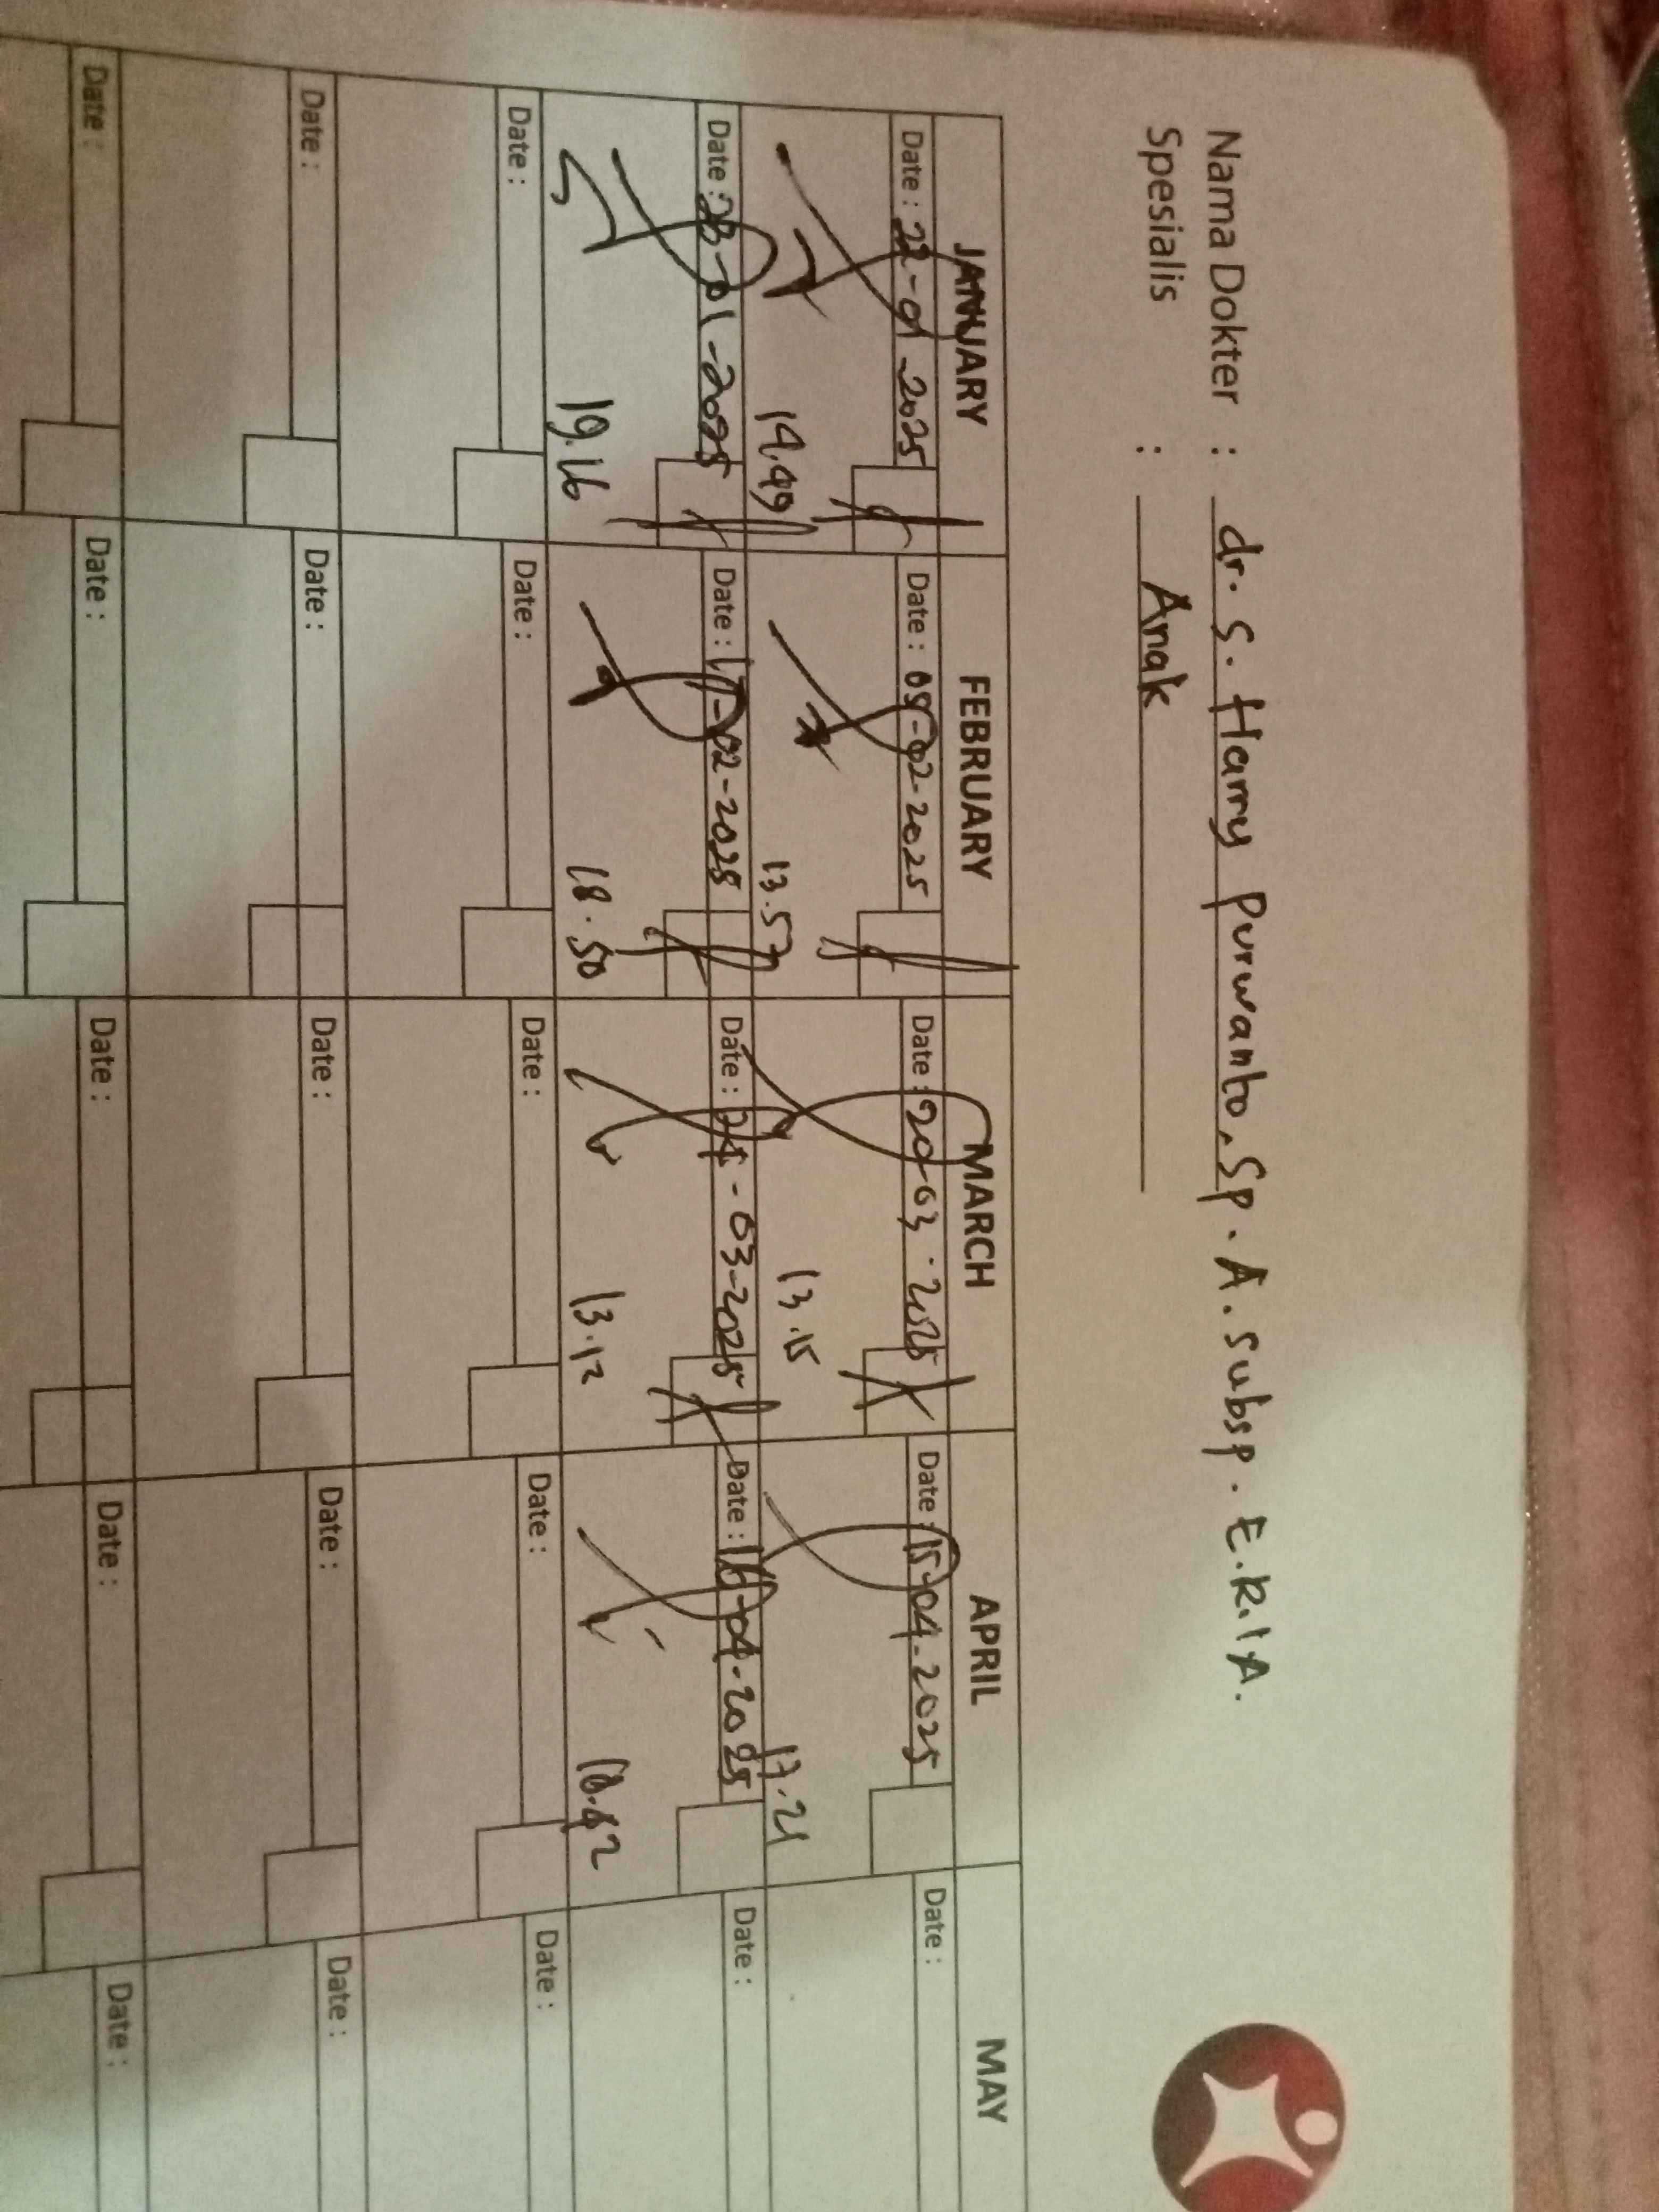 Nama Dokter : dr. S. Harry Purwanto, Sp. A. Subsp. E.K.I.A.
Spesialis : Anak
JANUARY FEBRUARY MARCH APRIL MAY
Date : 22-01-2025 Date : 05-02-2025 Date : 20-03-2025 Date : 15-04-2025 Date :
14.49 13.57 13.15 17.21
Date : 23-01-2025 Date : 17-02-2025 Date : -03-2025 Date : 16-04-2025 Date :
19.16 18.50 13.12 18.42
Date : Date : Date : Date : Date :
Date : Date : Date : Date : Date :
Date : Date : Date : Date : Date :